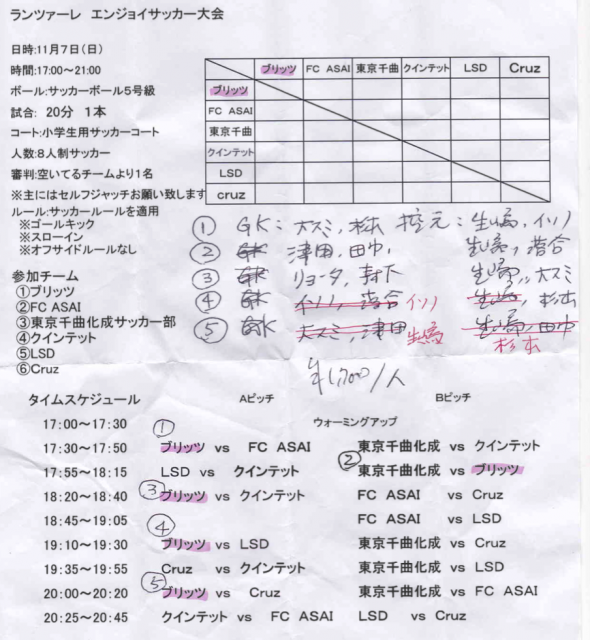 ランツァーレ エンジョイサッカー大会
日時:11月7日(日)
時間:17:00～21:00
ボール:サッカーボール5号級
試合: 20分 1本
コート:小学生用サッカーコート
人数:8人制サッカー
審判:空いてるチームより1名
※主にはセルフジャッチお願い致します
ルール:サッカールールを適用
※ゴールキック
※スローイン
※オフサイドルールなし
ブリッツ FC ASAI 東京千曲 クインテット LSD Cruz
ブリッツ
FC ASAI
東京千曲
クインテット
LSD
cruz
① GK: 大スミ, 杉本 控元: 生嶌, イソノ
② GK 津田, 田中, 生嶌, 落合
③ GK リョータ, 生嶌, 大スミ
④ GK イソノ, 落合 イソノ 生嶌, 杉本
⑤ GK 大スミ, 津田 生嶌 生嶌, 田中
杉本
¥1,700/人
参加チーム
①ブリッツ
②FC ASAI
③東京千曲化成サッカー部
④クインテット
⑤LSD
⑥Cruz
タイムスケジュール Aピッチ Bピッチ
17:00～17:30 ① ウォーミングアップ
17:30～17:50 ブリッツ vs FC ASAI 東京千曲化成 vs クインテット
17:55～18:15 LSD vs クインテット ② 東京千曲化成 vs ブリッツ
18:20～18:40 ③ ブリッツ vs クインテット FC ASAI vs Cruz
18:45～19:05 ④ FC ASAI vs LSD
19:10～19:30 ブリッツ vs LSD 東京千曲化成 vs Cruz
19:35～19:55 Cruz vs クインテット 東京千曲化成 vs LSD
20:00～20:20 ⑤ ブリッツ vs Cruz 東京千曲化成 vs FC ASAI
20:25～20:45 クインテット vs FC ASAI LSD vs Cruz